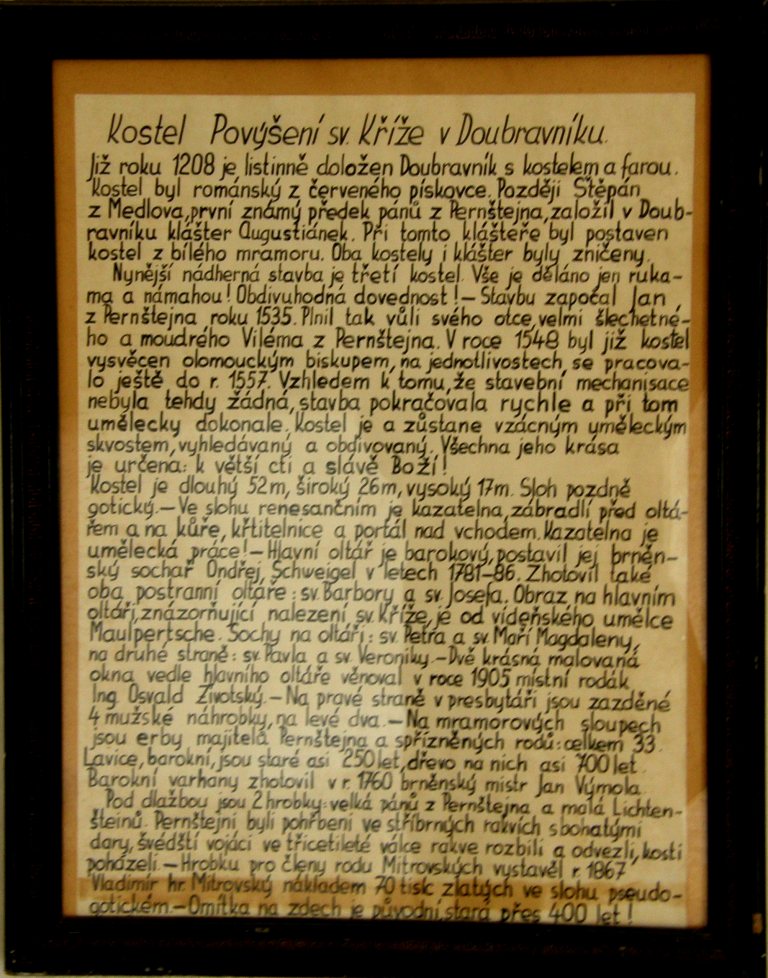 Kostel Povýšení sv. Kříže v Doubravníku.
Již roku 1208 je listinně doložen Doubravník s kostelem a farou.
Kostel byl románský z červeného pískovce. Později Štěpán
z Medlova, první známý předek pánů z Pernštejna, založil v Doub-
ravníku klášter Augustiánek. Při tomto klášteře byl postaven
kostel z bílého mramoru. Oba kostely i klášter byly zničeny.
Nynější nádherná stavba je třetí kostel. Vše je děláno jen ruka-
ma a námahou! Obdivuhodná dovednost! – Stavbu započal Jan
z Pernštejna roku 1535. Plnil tak vůli svého otce, velmi šlechetné-
ho a moudrého Viléma z Pernštejna. V roce 1548 byl již kostel
vysvěcen olomouckým biskupem, na jednotlivostech se pracova-
lo ještě do r. 1557. Vzhledem k tomu, že stavební mechanisace
nebyla tehdy žádná, stavba pokračovala rychle a při tom
umělecky dokonale. Kostel je a zůstane vzácným uměleckým
skvostem, vyhledávaný a obdivovaný. Všechna jeho krása
je určena: k větší cti a slávě Boží!
Kostel je dlouhý 52m, široký 26m, vysoký 17m. Sloh pozdně
gotický. – Ve slohu renesančním je kazatelna, zábradlí před oltá-
řem a na kůře, křtitelnice a portál nad vchodem. Kazatelna je
umělecká práce! – Hlavní oltář je barokový, postavil jej brněn-
ský sochař Ondřej Schweigel v letech 1781–86. Zhotovil také
oba postranní oltáře: sv. Barbory a sv. Josefa. Obraz na hlavním
oltáři, znázorňující nalezení sv. Kříže, je od vídeňského umělce
Maulpertsche. Sochy na oltáři: sv. Petra a sv. Maří Magdaleny,
na druhé straně: sv. Pavla a sv. Veroniky. – Dvě krásná malovaná
okna vedle hlavního oltáře věnoval v roce 1905 místní rodák
Ing. Osvald Životský. – Na pravé straně v presbytáři jsou zazděné
4 mužské náhrobky, na levé dva. – Na mramorových sloupech
jsou erby majitelů Pernštejna a spřízněných rodů: celkem 33.
Lavice, barokní, jsou staré asi 250 let, dřevo na nich asi 700 let.
Barokní varhany zhotovil v r. 1760 brněnský mistr Jan Výmola.
Pod dlažbou jsou 2 hrobky: velká pánů z Pernštejna a malá Lichten-
šteinů. Pernštejni byli pohřbeni ve stříbrných rakvích s bohatými
dary, švédští vojáci ve třicetileté válce rakve rozbili a odvezli, kosti
poházeli. – Hrobku pro členy rodu Mitrovských vystavěl r. 1867
Vladimír hr. Mitrovský nákladem 70 tisíc zlatých ve slohu pseudo-
gotickém. – Omítka na zdech je původní, stará přes 400 let!